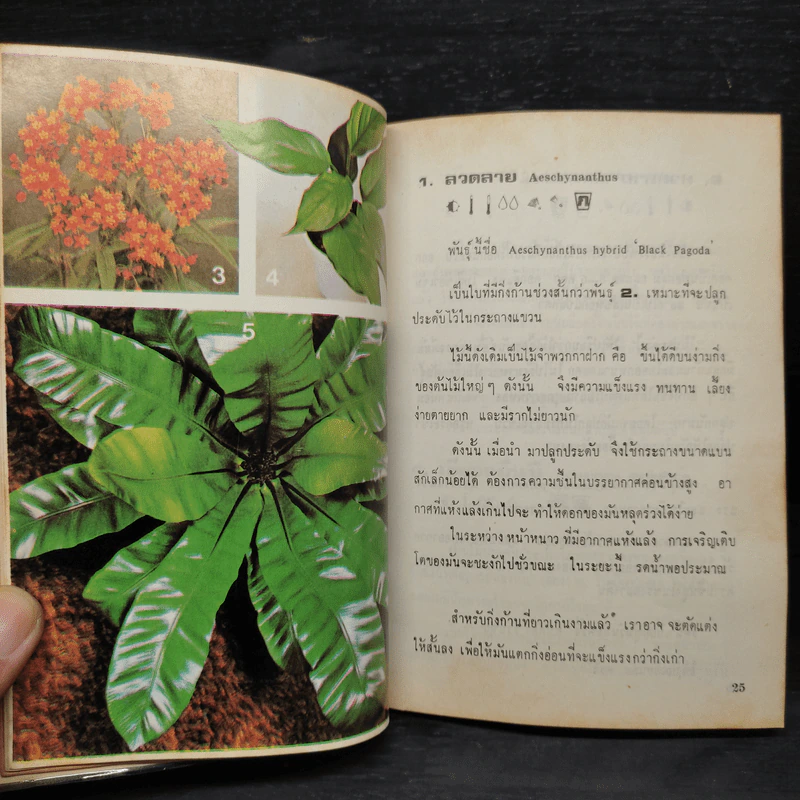 3
4
5
1. ลวดลาย Aeschynanthus
พันธุ์นี้ชื่อ Aeschynanthus hybrid 'Black Pagoda'
เป็นใบที่มีกิ่งก้านช่วงสั้นกว่าพันธุ์ 2. เหมาะที่จะปลูก
ประดับไว้ในกระถางแขวน
ไม้นี้ดั้งเดิมเป็นไม้จำพวกกาฝาก คือ ขึ้นได้ดีบนง่ามกิ่ง
ของต้นไม้ใหญ่ๆ ดังนั้น จึงมีความแข็งแรง ทนทาน เลี้ยง
ง่ายตายยาก และมีรากไม่ยาวนัก
ดังนั้น เมื่อนำ มาปลูกประดับ จึงใช้กระถางขนาดแบน
สักเล็กน้อยได้ ต้องการความชื้นในบรรยากาศค่อนข้างสูง อา
กาศที่แห้งแล้งเกินไปจะ ทำให้ดอกของมันหลุดร่วงได้ง่าย
ในระหว่าง หน้าหนาว ที่มีอากาศแห้งแล้ง การเจริญเติบ
โตของมันจะชะงักไปชั่วขณะ ในระยะนี้ รดน้ำพอประมาณ
สำหรับกิ่งก้านที่ยาวเกินงามแล้ว เราอาจ จะตัดแต่ง
ให้สั้นลง เพื่อให้มันแตกกิ่งอ่อนที่จะแข็งแรงกว่ากิ่งเก่า
25